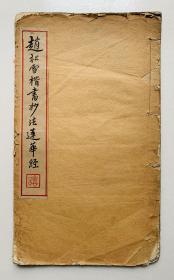 趙松雪楷書抄法蓮華經